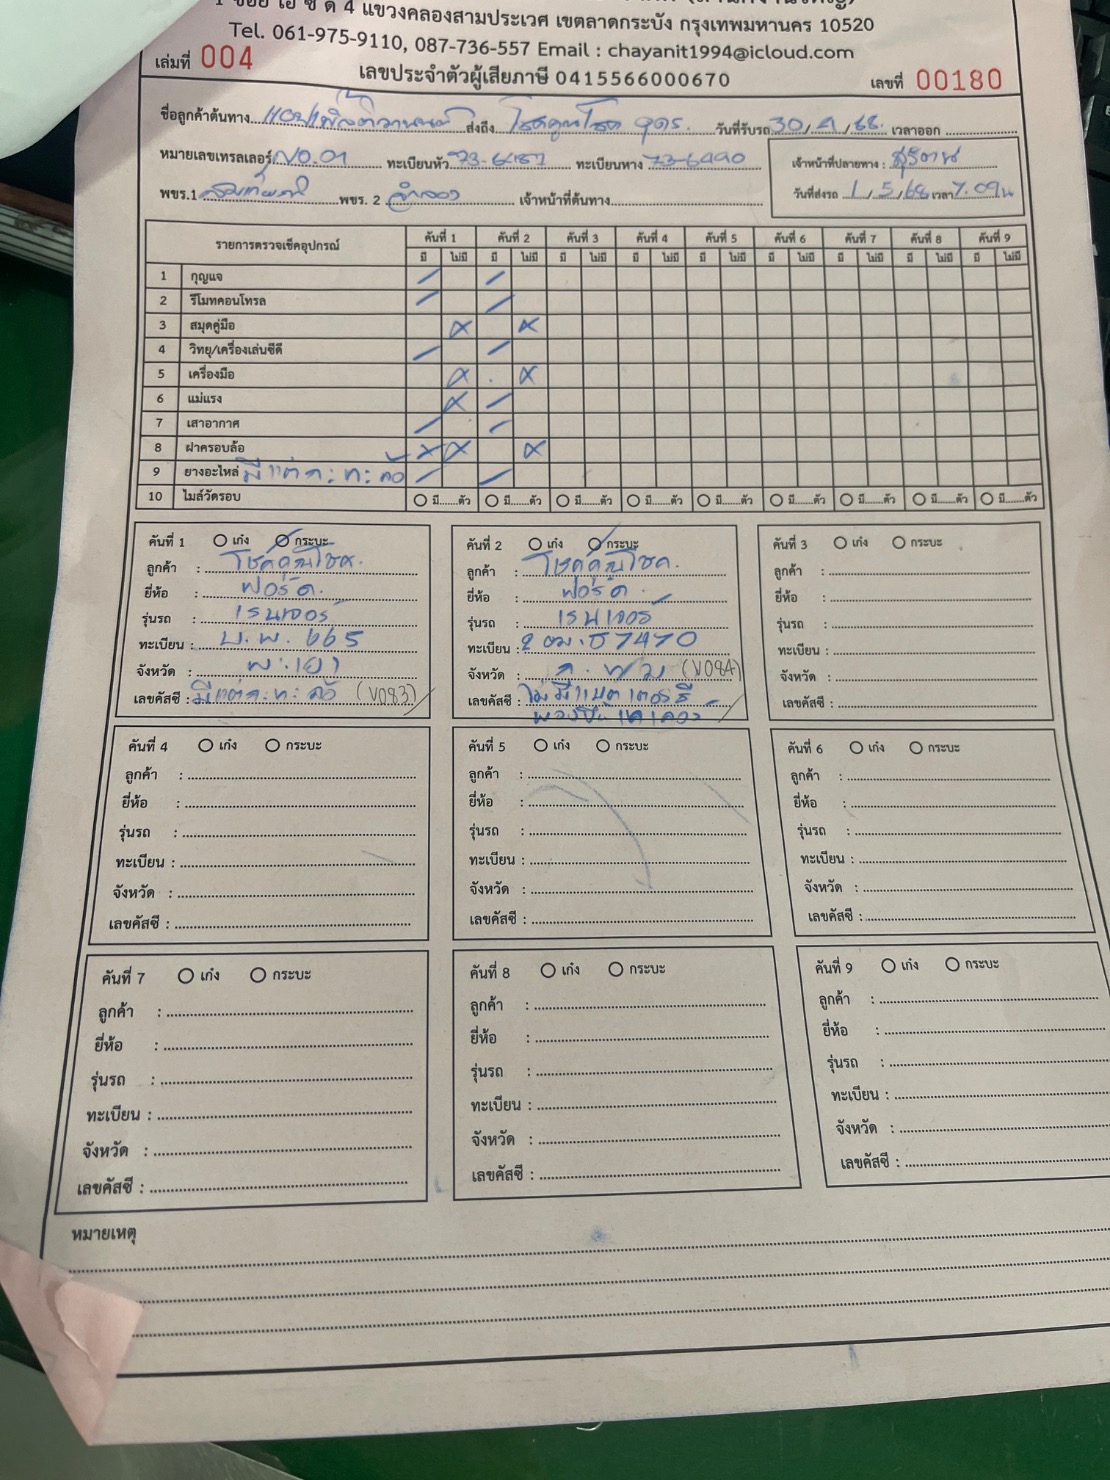 1 ซอย ไอ ซี ดี 4 แขวงคลองสามประเวศ เขตลาดกระบัง กรุงเทพมหานคร 10520
Tel. 061-975-9110, 087-736-557 Email : chayanit1994@icloud.com
เล่มที่ 004 เลขประจำตัวผู้เสียภาษี 0415566000670 เลขที่ 00180
ชื่อลูกค้าต้นทาง ส่งถึง โชคคูณโชค อุดร. วันที่รับรถ 30/4/68 เวลาออก
หมายเลขเทรลเลอร์ NO.01 ทะเบียนหัว ทะเบียนหาง 73-6490 เจ้าหน้าที่ปลายทาง :
พขร.1 พขร. 2 จำลอง เจ้าหน้าที่ต้นทาง วันที่ส่งรถ 1/5/68 เวลา 7.09น
รายการตรวจเช็คอุปกรณ์ คันที่ 1 คันที่ 2 คันที่ 3 คันที่ 4 คันที่ 5 คันที่ 6 คันที่ 7 คันที่ 8 คันที่ 9
มี ไม่มี มี ไม่มี มี ไม่มี มี ไม่มี มี ไม่มี มี ไม่มี มี ไม่มี มี ไม่มี มี ไม่มี
1 กุญแจ
2 รีโมทคอนโทรล
3 สมุดคู่มือ
4 วิทยุ/เครื่องเล่นซีดี
5 เครื่องมือ
6 แม่แรง
7 เสาอากาศ
8 ฝาครอบล้อ
9 ยางอะไหล่ มีแต่ก.ท.ล้อ
10 ไมล์วัดรอบ มี......ตัว มี......ตัว มี......ตัว มี......ตัว มี......ตัว มี......ตัว มี......ตัว มี......ตัว มี......ตัว
คันที่ 1 เก๋ง กระบะ คันที่ 2 เก๋ง กระบะ คันที่ 3 เก๋ง กระบะ
ลูกค้า : โชคคูณโชค. ลูกค้า : โชคคูณโชค. ลูกค้า :
ยี่ห้อ : ฟอร์ด. ยี่ห้อ : ฟอร์ด. ยี่ห้อ :
รุ่นรถ : เรนเจอร์ รุ่นรถ : เรนเจอร์ รุ่นรถ :
ทะเบียน : บ.พ. 665 ทะเบียน : 2 ฒฮ 7470 ทะเบียน :
จังหวัด : พ.เยา จังหวัด : ก.ท.ม (V084) จังหวัด :
เลขคัสซี : มีแต่ก.ท.ล้อ (V083) เลขคัสซี : ไม่มีแบตเตอรี่ เลขคัสซี :
คันที่ 4 เก๋ง กระบะ คันที่ 5 เก๋ง กระบะ คันที่ 6 เก๋ง กระบะ
ลูกค้า : ลูกค้า : ลูกค้า :
ยี่ห้อ : ยี่ห้อ : ยี่ห้อ :
รุ่นรถ : รุ่นรถ : รุ่นรถ :
ทะเบียน : ทะเบียน : ทะเบียน :
จังหวัด : จังหวัด : จังหวัด :
เลขคัสซี : เลขคัสซี : เลขคัสซี :
คันที่ 7 เก๋ง กระบะ คันที่ 8 เก๋ง กระบะ คันที่ 9 เก๋ง กระบะ
ลูกค้า : ลูกค้า : ลูกค้า :
ยี่ห้อ : ยี่ห้อ : ยี่ห้อ :
รุ่นรถ : รุ่นรถ : รุ่นรถ :
ทะเบียน : ทะเบียน : ทะเบียน :
จังหวัด : จังหวัด : จังหวัด :
เลขคัสซี : เลขคัสซี : เลขคัสซี :
หมายเหตุ